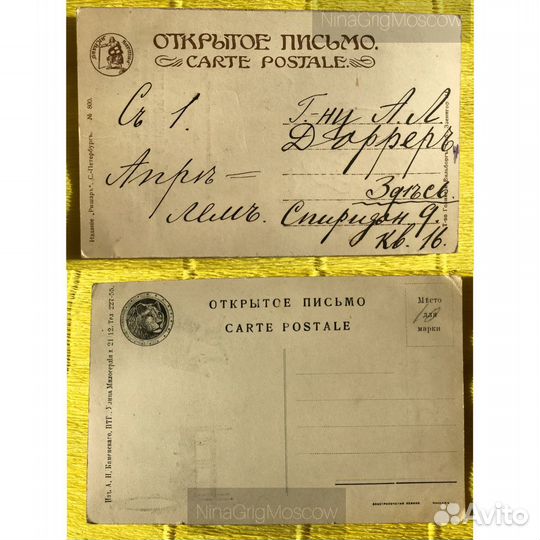 NinaGrigMoscow
ОТКРЫТОЕ ПИСЬМО.
CARTE POSTALE.
Изданіе „Ришаръ“, С.-Петербургъ. № 800.
Съ 1.
Апрѣ=
лемъ.
Г-ну А. Л
Дорреръ
Здѣсь.
Спиридон 9.
кв. 16.
ОТКРЫТОЕ ПИСЬМО
CARTE POSTALE
Мѣсто
для
марки
10
Изд. А. Н. Каменскаго, ВТГ., Улица Милосердія д. 21 12. Тел. 227-55.
NinaGrigMoscow
Avito